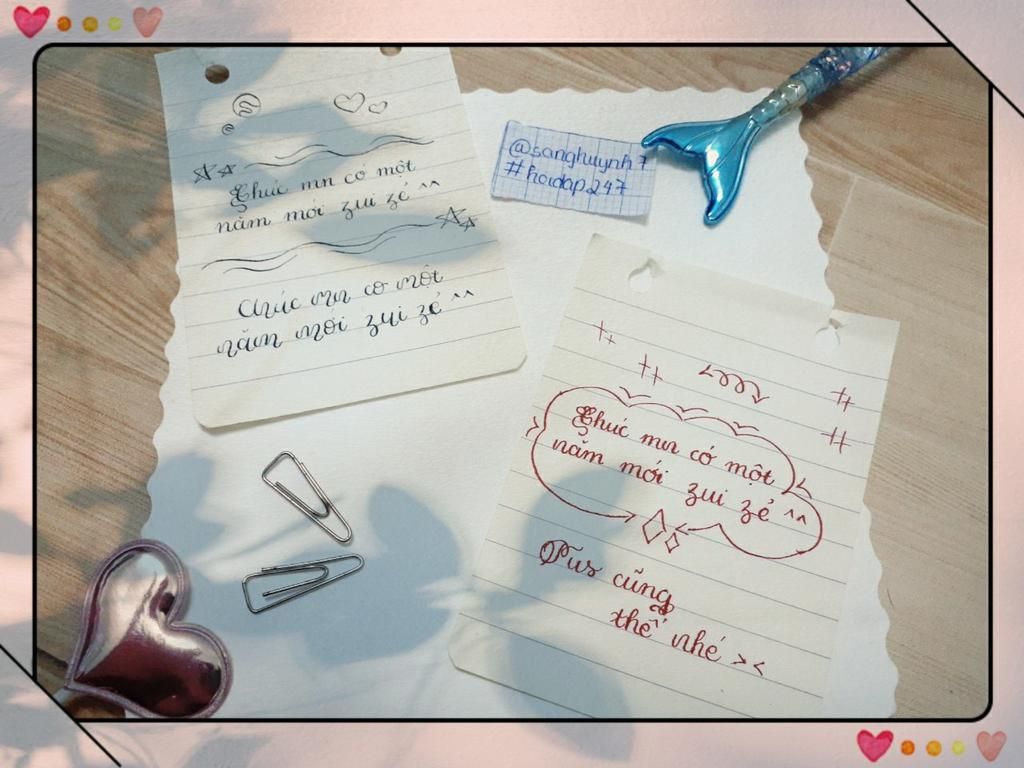 Chúc mn có một
năm mới zui zẻ ^^
Chúc mn có một
năm mới zui zẻ ^^
@sanghuynh7
#hoidap247
Chúc mn có một
năm mới zui zẻ ^^
cũng
thế nhé > <